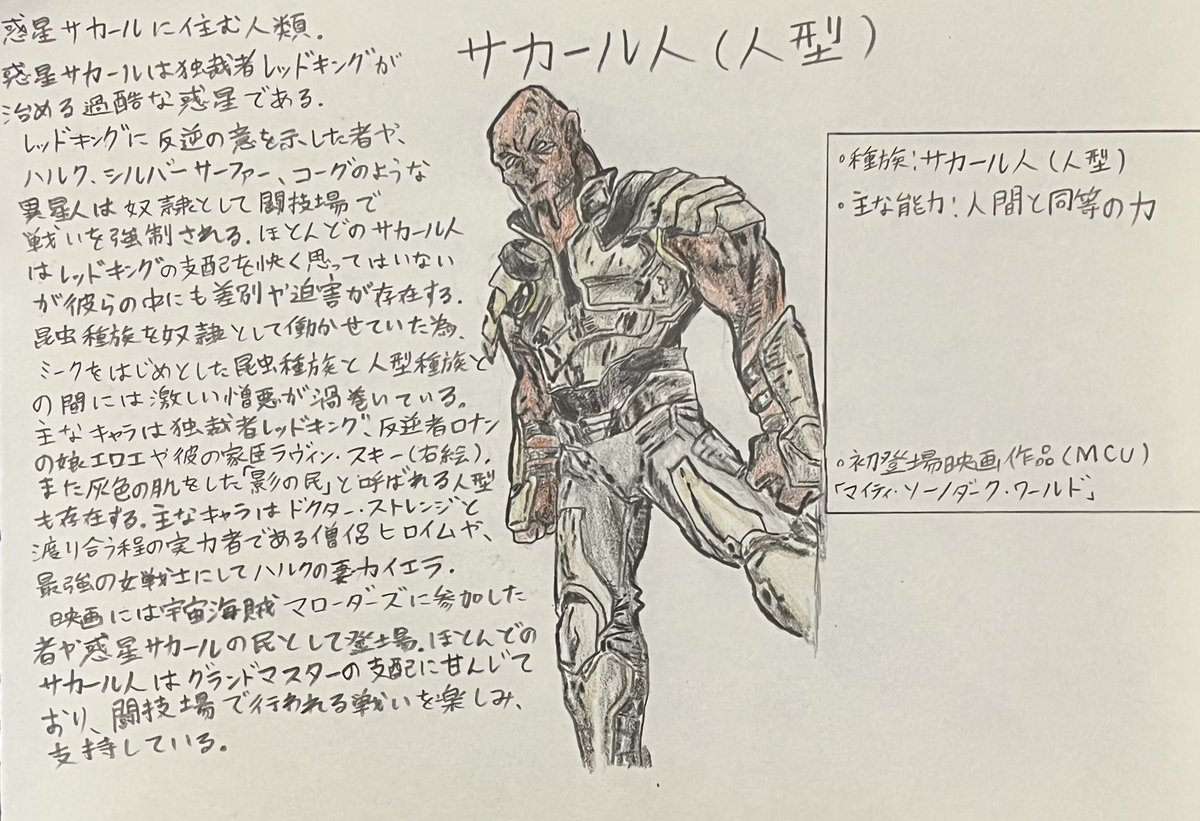 サカール人(人型)
惑星サカールに住む人類.
惑星サカールは独裁者レッドキングが
治める過酷な惑星である.
レッドキングに反逆の意を示した者や、
ハルク、シルバーサーファー、コーグのような
異星人は奴隷として闘技場で
戦いを強制される.ほとんどのサカール人
はレッドキングの支配を快く思ってはいない
が彼らの中にも差別や迫害が存在する.
昆虫種族を奴隷として働かせていた為、
ミークをはじめとした昆虫種族と人型種族と
の間には激しい憎悪が渦巻いている。
主なキャラは独裁者レッドキング、反逆者ロナン
の娘エロエや彼の家臣ラヴィン・スキー(右絵).
また灰色の肌をした「影の民」と呼ばれる人型
も存在する.主なキャラはドクター・ストレンジと
渡り合う程の実力者である僧侶ヒロイムや、
最強の女戦士にしてハルクの妻カイエラ.
映画には宇宙海賊マローダーズに参加した
者や惑星サカールの民として登場.ほとんどの
サカール人はグランドマスターの支配に甘んじて
おり、闘技場で行われる戦いを楽しみ、
支持している。
・種族:サカール人(人型)
・主な能力:人間と同等の力
・初登場映画作品(MCU)
「マイティ・ソー/ダーク・ワールド」